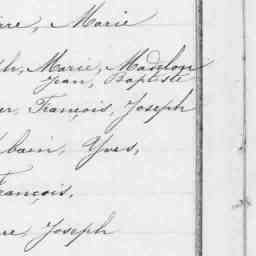 Marie
Marie, Madelon
Jean, Baptiste
François, Joseph
Yves,
François,
Joseph